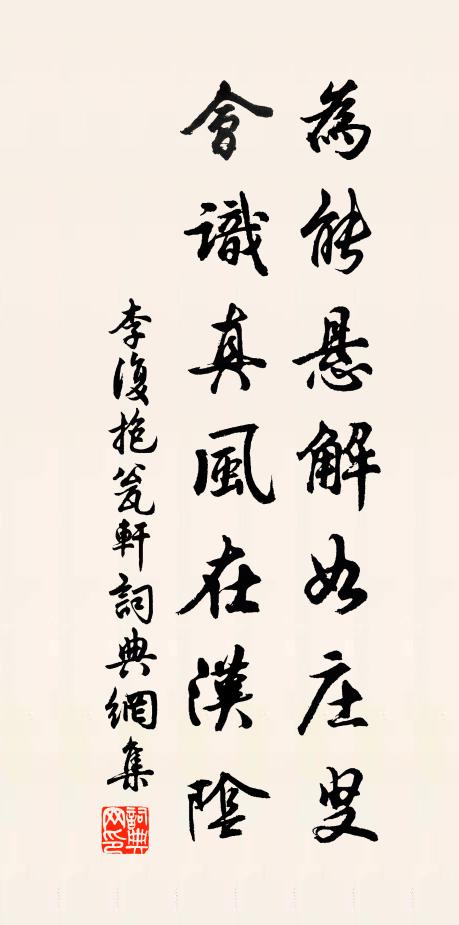 為能悬解如庄叟
會識真風在漢陰
李復抱瓮軒詞典網集
詞典网印